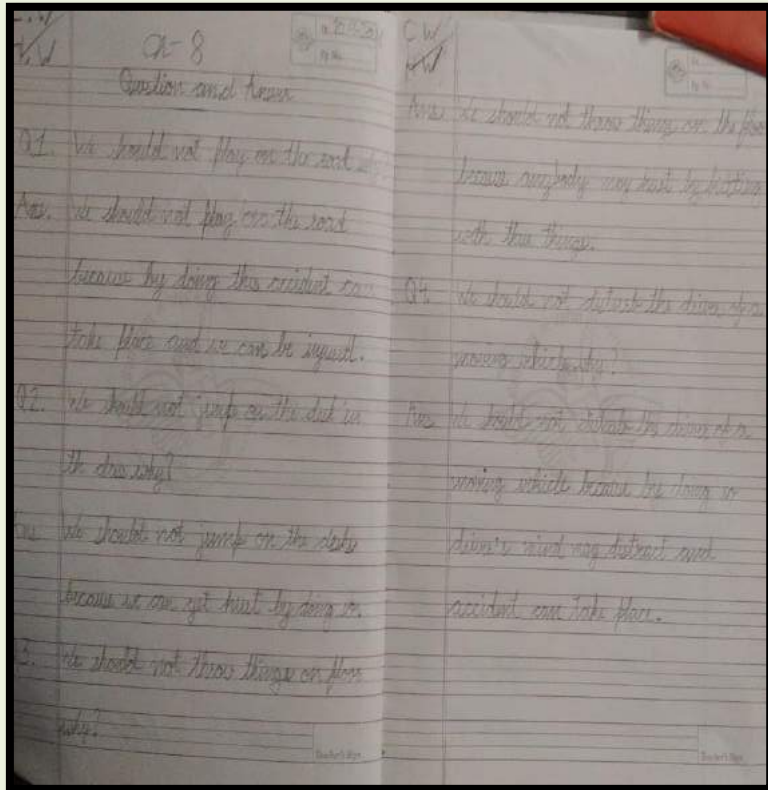 C.W
H.W
Ch- 8
Question and Answer
Q1. We should not play on the road
Ans. We should not play on the road
because by doing this accident can
take place and we can be injured.
Q2. We should not jump on the desk in
th class why?
Ans We should not jump on the desks
because we can get hurt by doing so.
3. We should not throw things on floor
why?
Teacher's Sign
C W
H.W
Ans We should not throw things on the floor
because anybody may hurt by hitting
with this things.
Q4. We should not disturb the driver of a
moving vehicle why?
Ans We should not disturb the driver of a
moving vehicle because by doing so
driver's mind may distract and
accident can take place.
Teacher's Sign